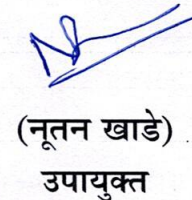 (नूतन खाडे)
उपायुक्त